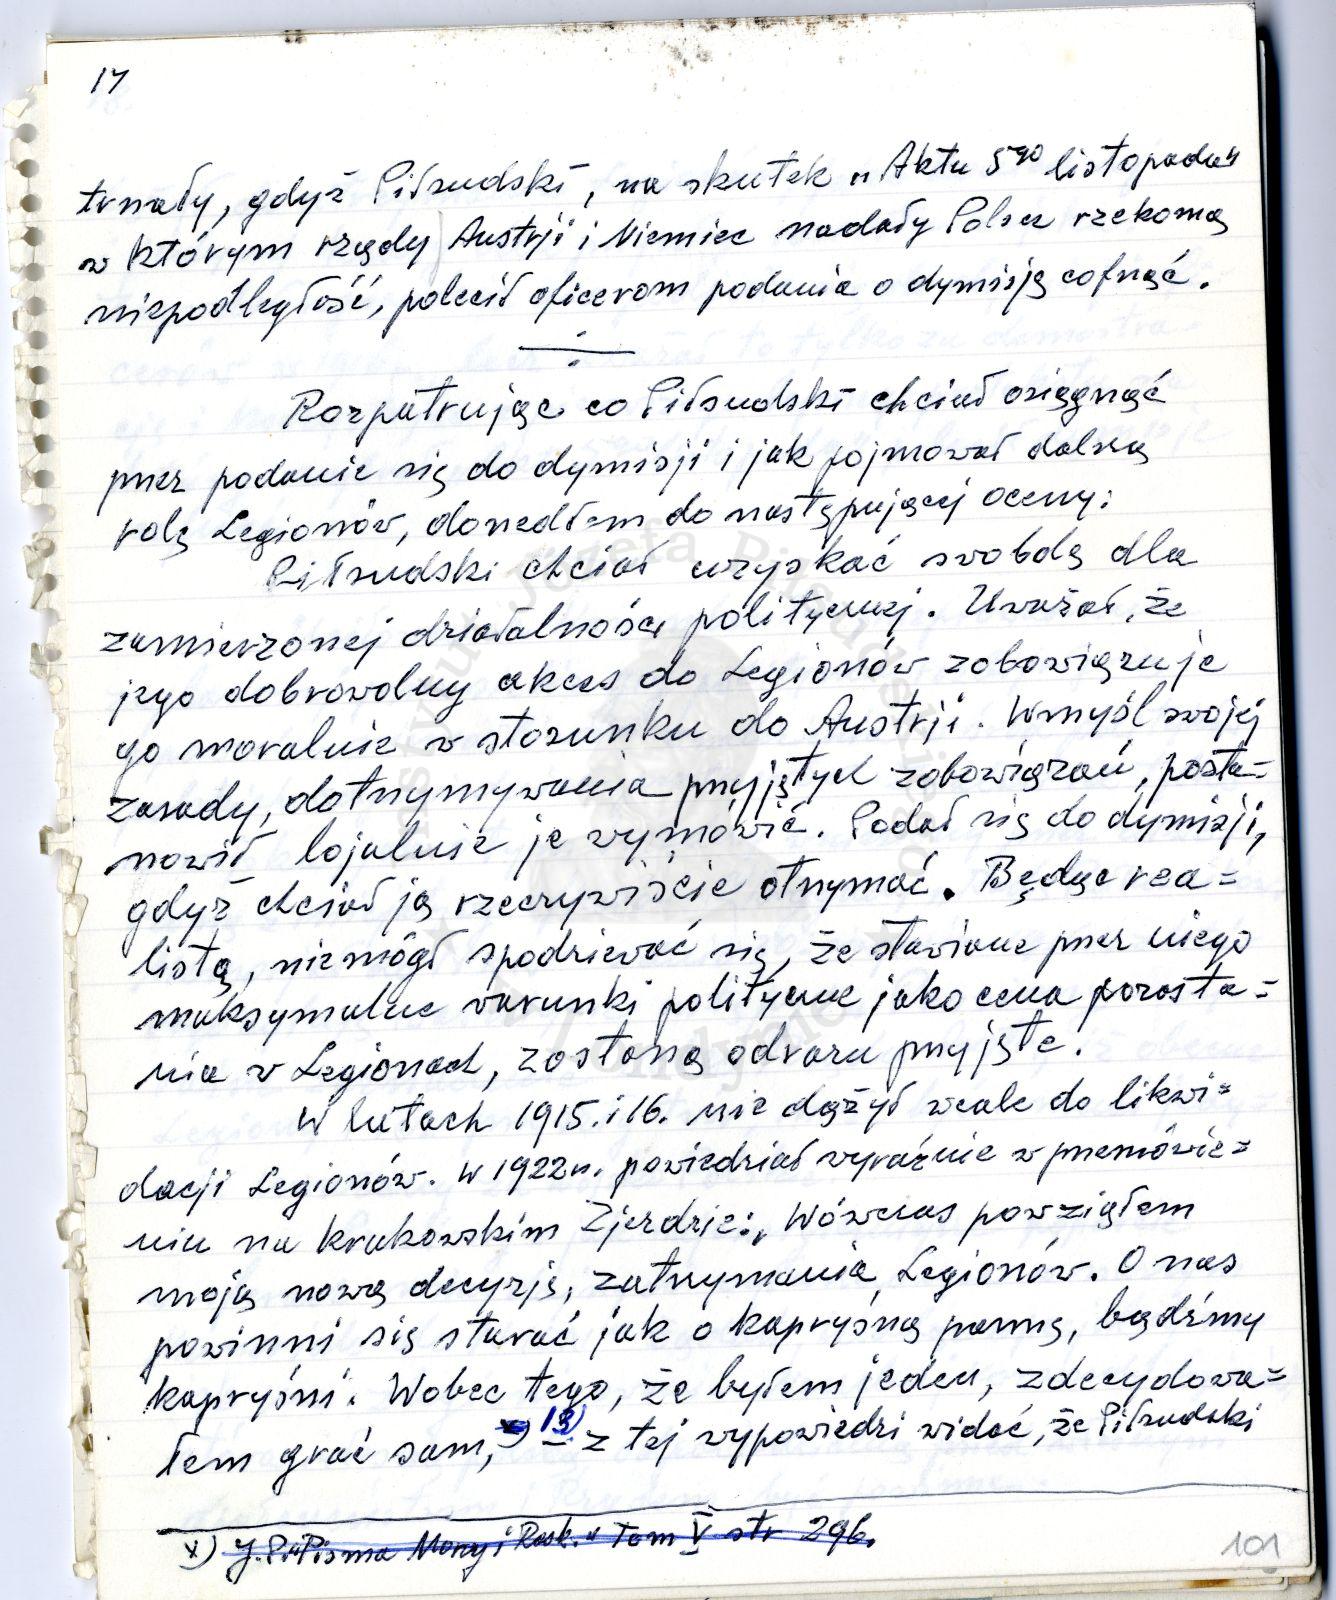 17
trmały, gdyż Piłsudski, na skutek „Aktu 5go listopada"
w którym rządy Austrji i Niemiec nadały Polsce rzekomą
niepodległość, polecił oficerom podania o dymisję cofnąć.
Rozpatrując co Piłsudski chciał osiągnąć
przez podanie się do dymisji i jak pojmował dalszą
rolę Legionów, doszedłem do następującej oceny:
Piłsudski chciał uzyskać swobdę dla
zamierzonej działalności politycznej. Uważał, że
jego dobrowolny akces do Legionów zobowiązuje
go moralnie w stosunku do Austrji. Wmyśl swojej
zasady, dotrzymywania przyjętych zobowiązań, posta=
nowił lojalnie je wymówić. Podał się do dymisji,
gdyż chciał ją rzeczywiście otrzymać. Będąc rea=
listą, niemógł spodziewać się, że stawiane przez niego
maksymalne warunki polityczne jako cena pozosta=
nia w Legionach, zostaną odrazu przyjęte.
W latach 1915. i 16. nie dążył wcale do likwi=
dacji Legionów. W 1922 r. powiedział wyraźnie w przemówie=
niu na krakowskim Zjeździe: „Wówczas powziąłem
moją nową decyzję, zatrzymania Legionów. O nas
powinni się starać jak o kapryśną pannę, bądźmy
kapryśni. Wobec tego, że byłem jeden, zdecydowa=
łem grać sam, 13) – z tej wypowiedzi widać, że Piłsudski
x) J.P. „Pisma Mowy i Rozk." Tom V str 296.
101